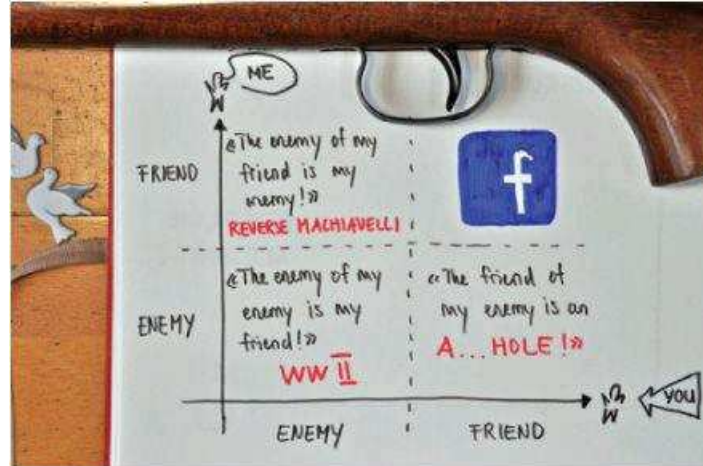 ME
FRIEND
«The enemy of my
friend is my
enemy!»
REVERSE MACHIAVELLI
f
ENEMY
«The enemy of my
enemy is my
friend!»
WW II
«The friend of
my enemy is an
A...HOLE!»
YOU
ENEMY
FRIEND